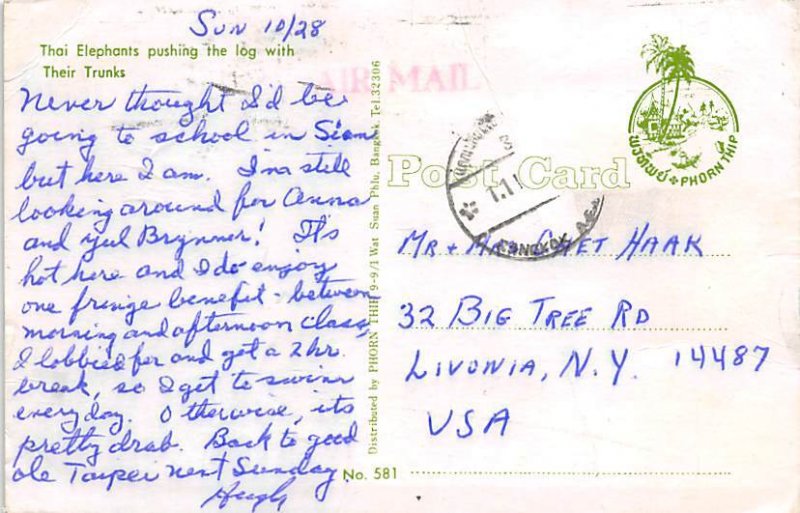 Sun 10/28
Thai Elephants pushing the log with
Their Trunks
Never thought I'd be
going to school in Siam
but here I am. I'm still
looking around for Anna
and Yul Brynner! It's
hot here and I do enjoy
one fringe benefit - between
morning and afternoon class,
I lobbied for and get a 2 hr.
break, so I get to swim
every day. Otherwise, its
pretty drab. Back to good
ole Taipei next Sunday.
Hugh
Distributed by PHORN THIP 9-9/1 Wat Suan Phlu, Bangkok Tel. 32306
No. 581
AIR MAIL
Post Card
พรทิพย์ PHORN THIP
BANGKOK
Mr + Mrs Chet Haak
32 Big Tree Rd
Livonia, N.Y. 14487
USA